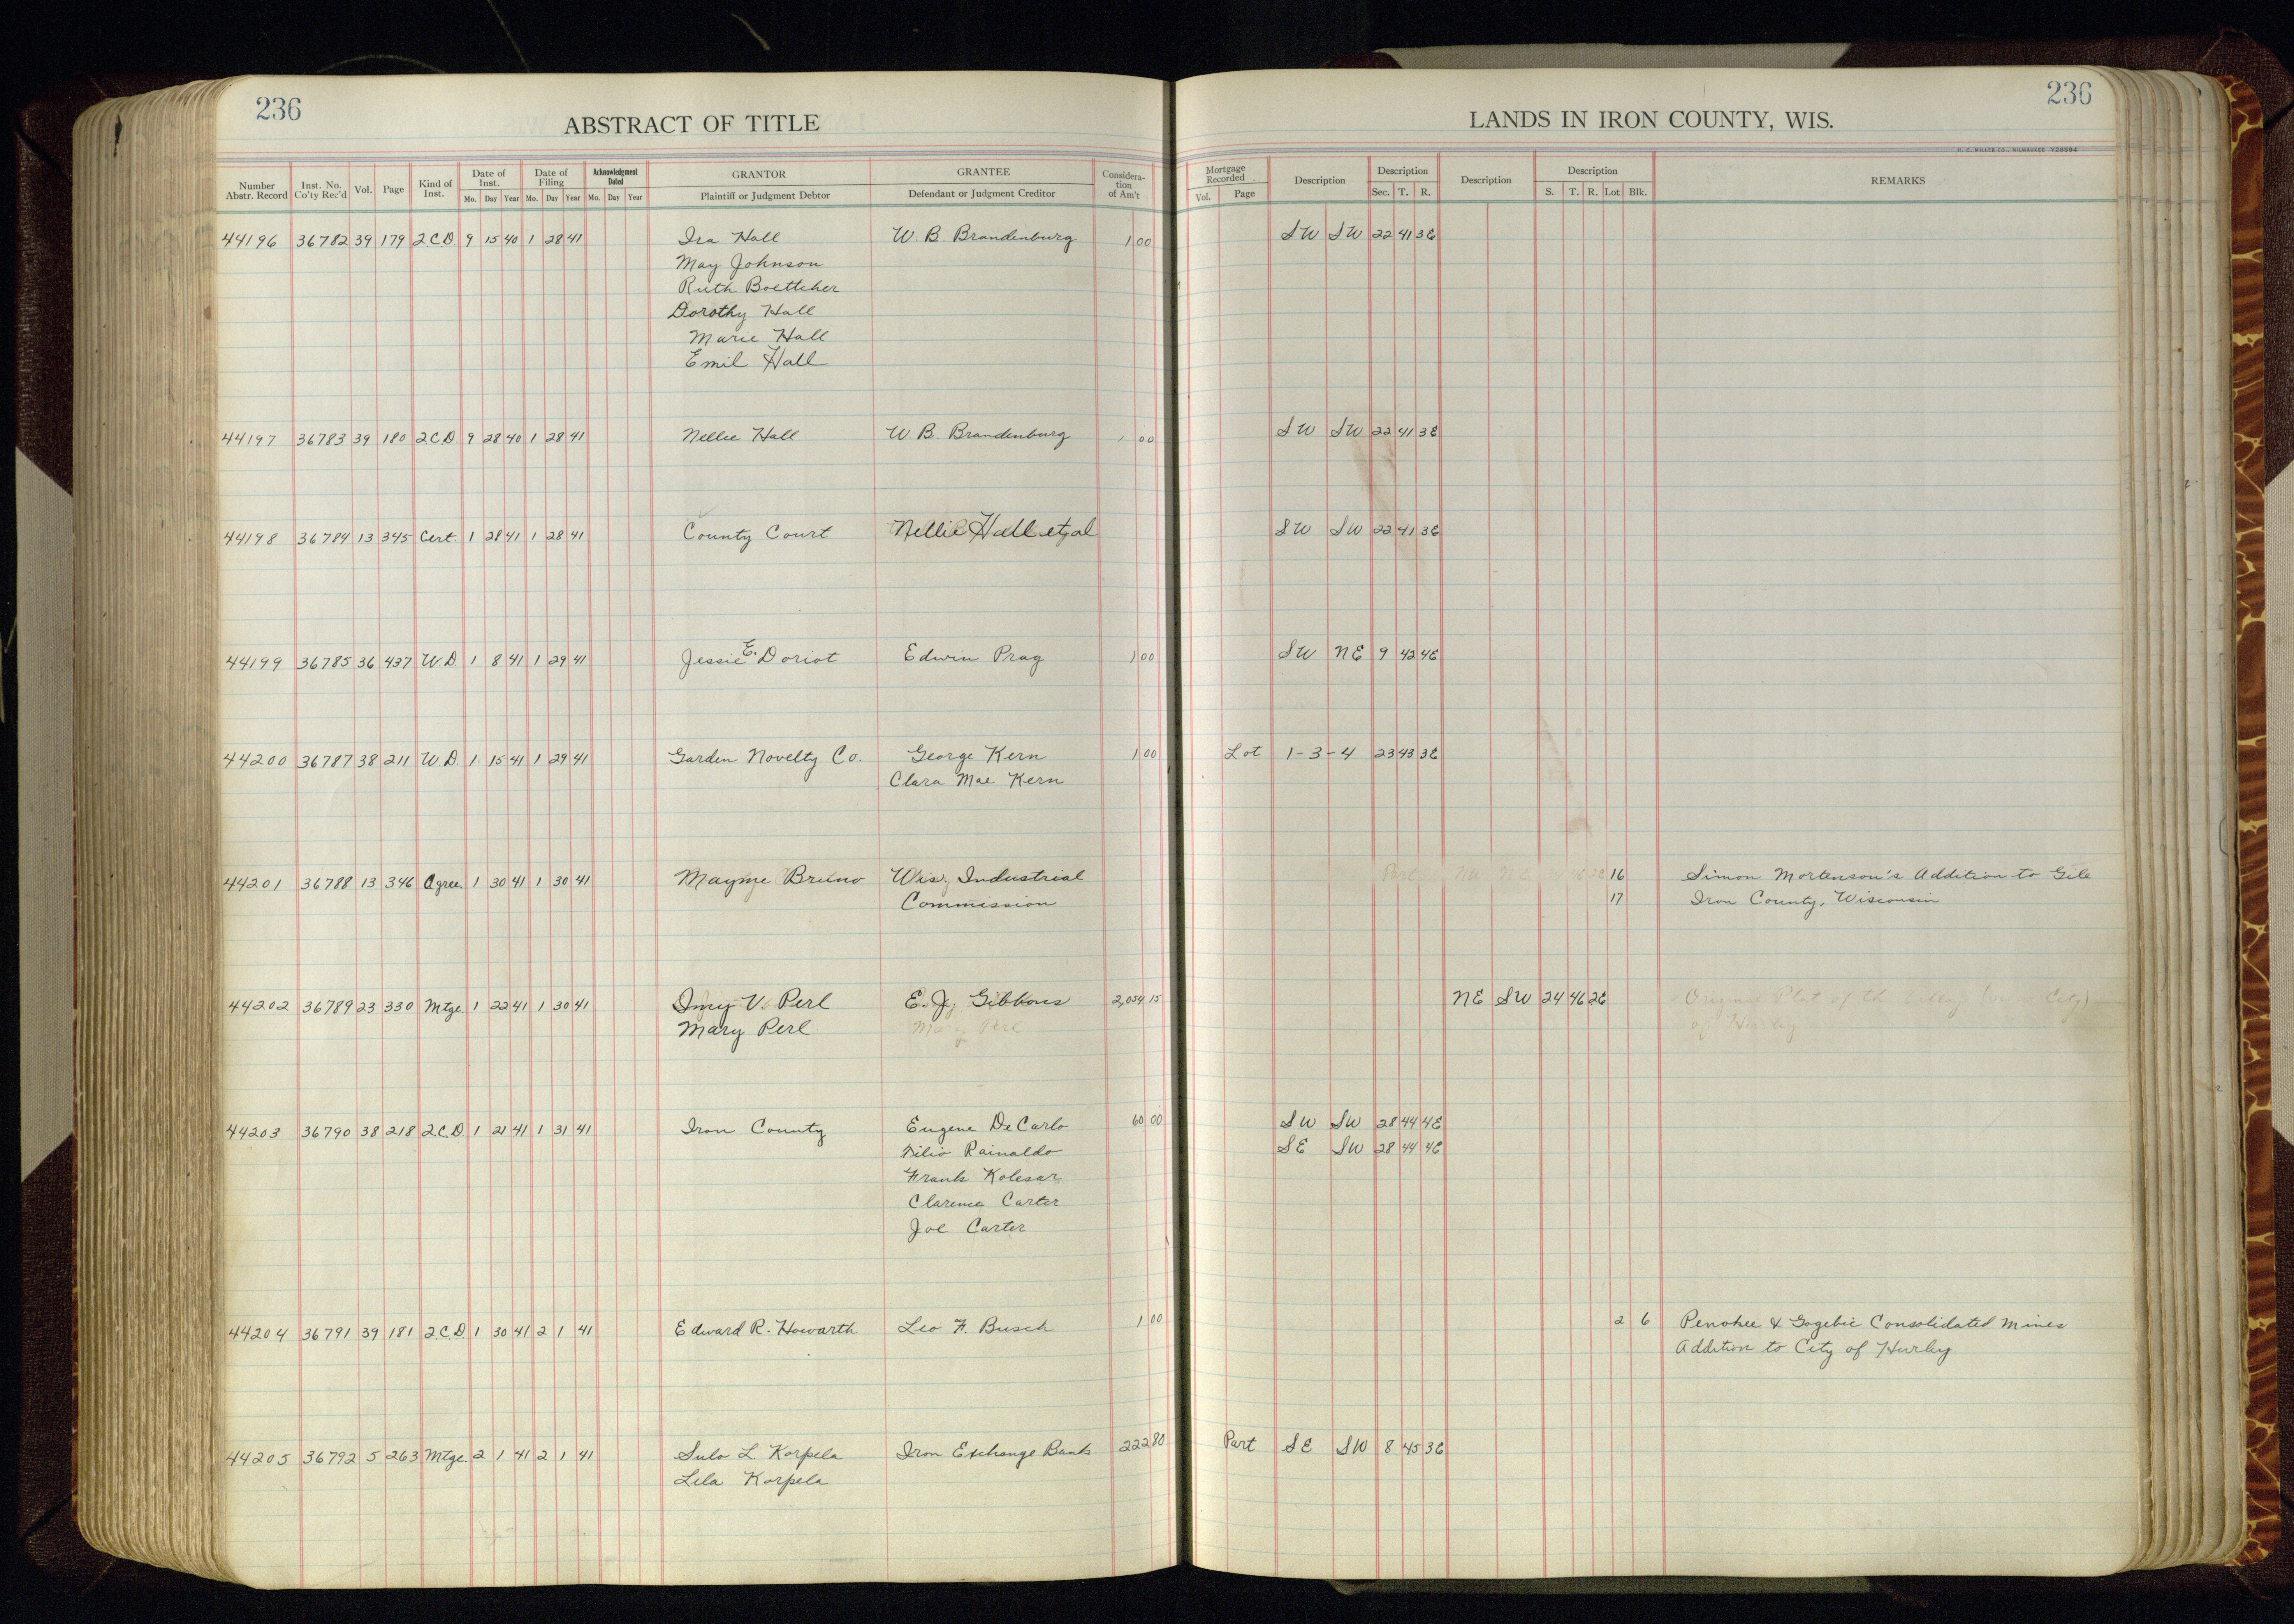 236
ABSTRACT OF TITLE
LANDS IN IRON COUNTY, WIS.
236
H. C. MILLER CO., MILWAUKEE
Number Abstr. Record Inst. No. Co'ty Rec'd Vol. Page Kind of Inst. Date of Inst. Mo. Day Year Date of Filing Mo. Day Year Acknowledgment Dated Mo. Day Year GRANTOR Plaintiff or Judgment Debtor GRANTEE Defendant or Judgment Creditor Consideration of Am't Mortgage Recorded Vol. Page Description Description Sec. T. R. Description Description S. T. R. Lot Blk. REMARKS
44196 36782 39 179 2CD 9 15 40 1 28 41 Ira Hall W. B. Brandenburg 1 00 SW SW 22 41 3E
May Johnson
Ruth Boettcher
Dorothy Hall
Marie Hall
Emil Hall
44197 36783 39 180 2CD 9 28 40 1 28 41 Nellie Hall W B. Brandenburg 1 00 SW SW 22 41 3E
44198 36784 13 345 Cert. 1 28 41 1 28 41 County Court Nellie Hall et al SW SW 22 41 3E
44199 36785 36 437 W.D 1 8 41 1 29 41 Jessie E. Doriot Edwin Prag 1 00 SW NE 9 42 4E
44200 36787 38 211 W D. 1 15 41 1 29 41 Garden Novelty Co. George Kern 1 00 Lot 1-3-4 23 43 3E
Clara Mae Kern
44201 36788 13 346 Agree. 1 30 41 1 30 41 Mayme Bruno Wis. Industrial 16 Simon Mortenson's Addition to Gile
Commission 17 Iron County, Wisconsin
44202 36789 23 330 Mtge. 1 22 41 1 30 41 V. Perl E. J. Gibbons 2,054 15 NE SW 24 46 2E Original Plat of the
Mary Perl Mary Perl of Hurley
44203 36790 38 218 2C.D 1 21 41 1 31 41 Iron County Eugene DeCarlo 60 00 SW SW 28 44 4E
Filio Rainaldo SE SW 28 44 4E
Frank Kolesar
Clarence Carter
Joe Carter
44204 36791 39 181 2C.D 1 30 41 2 1 41 Edward R. Howarth Leo F. Busch 1 00 2 6 Penokee & Gogebic Consolidated Mines
Addition to City of Hurley
44205 36792 5 263 Mtge. 2 1 41 2 1 41 Sulo L Korpela Iron Exchange Bank 222 80 Part SE SW 8 45 3E
Lila Korpela